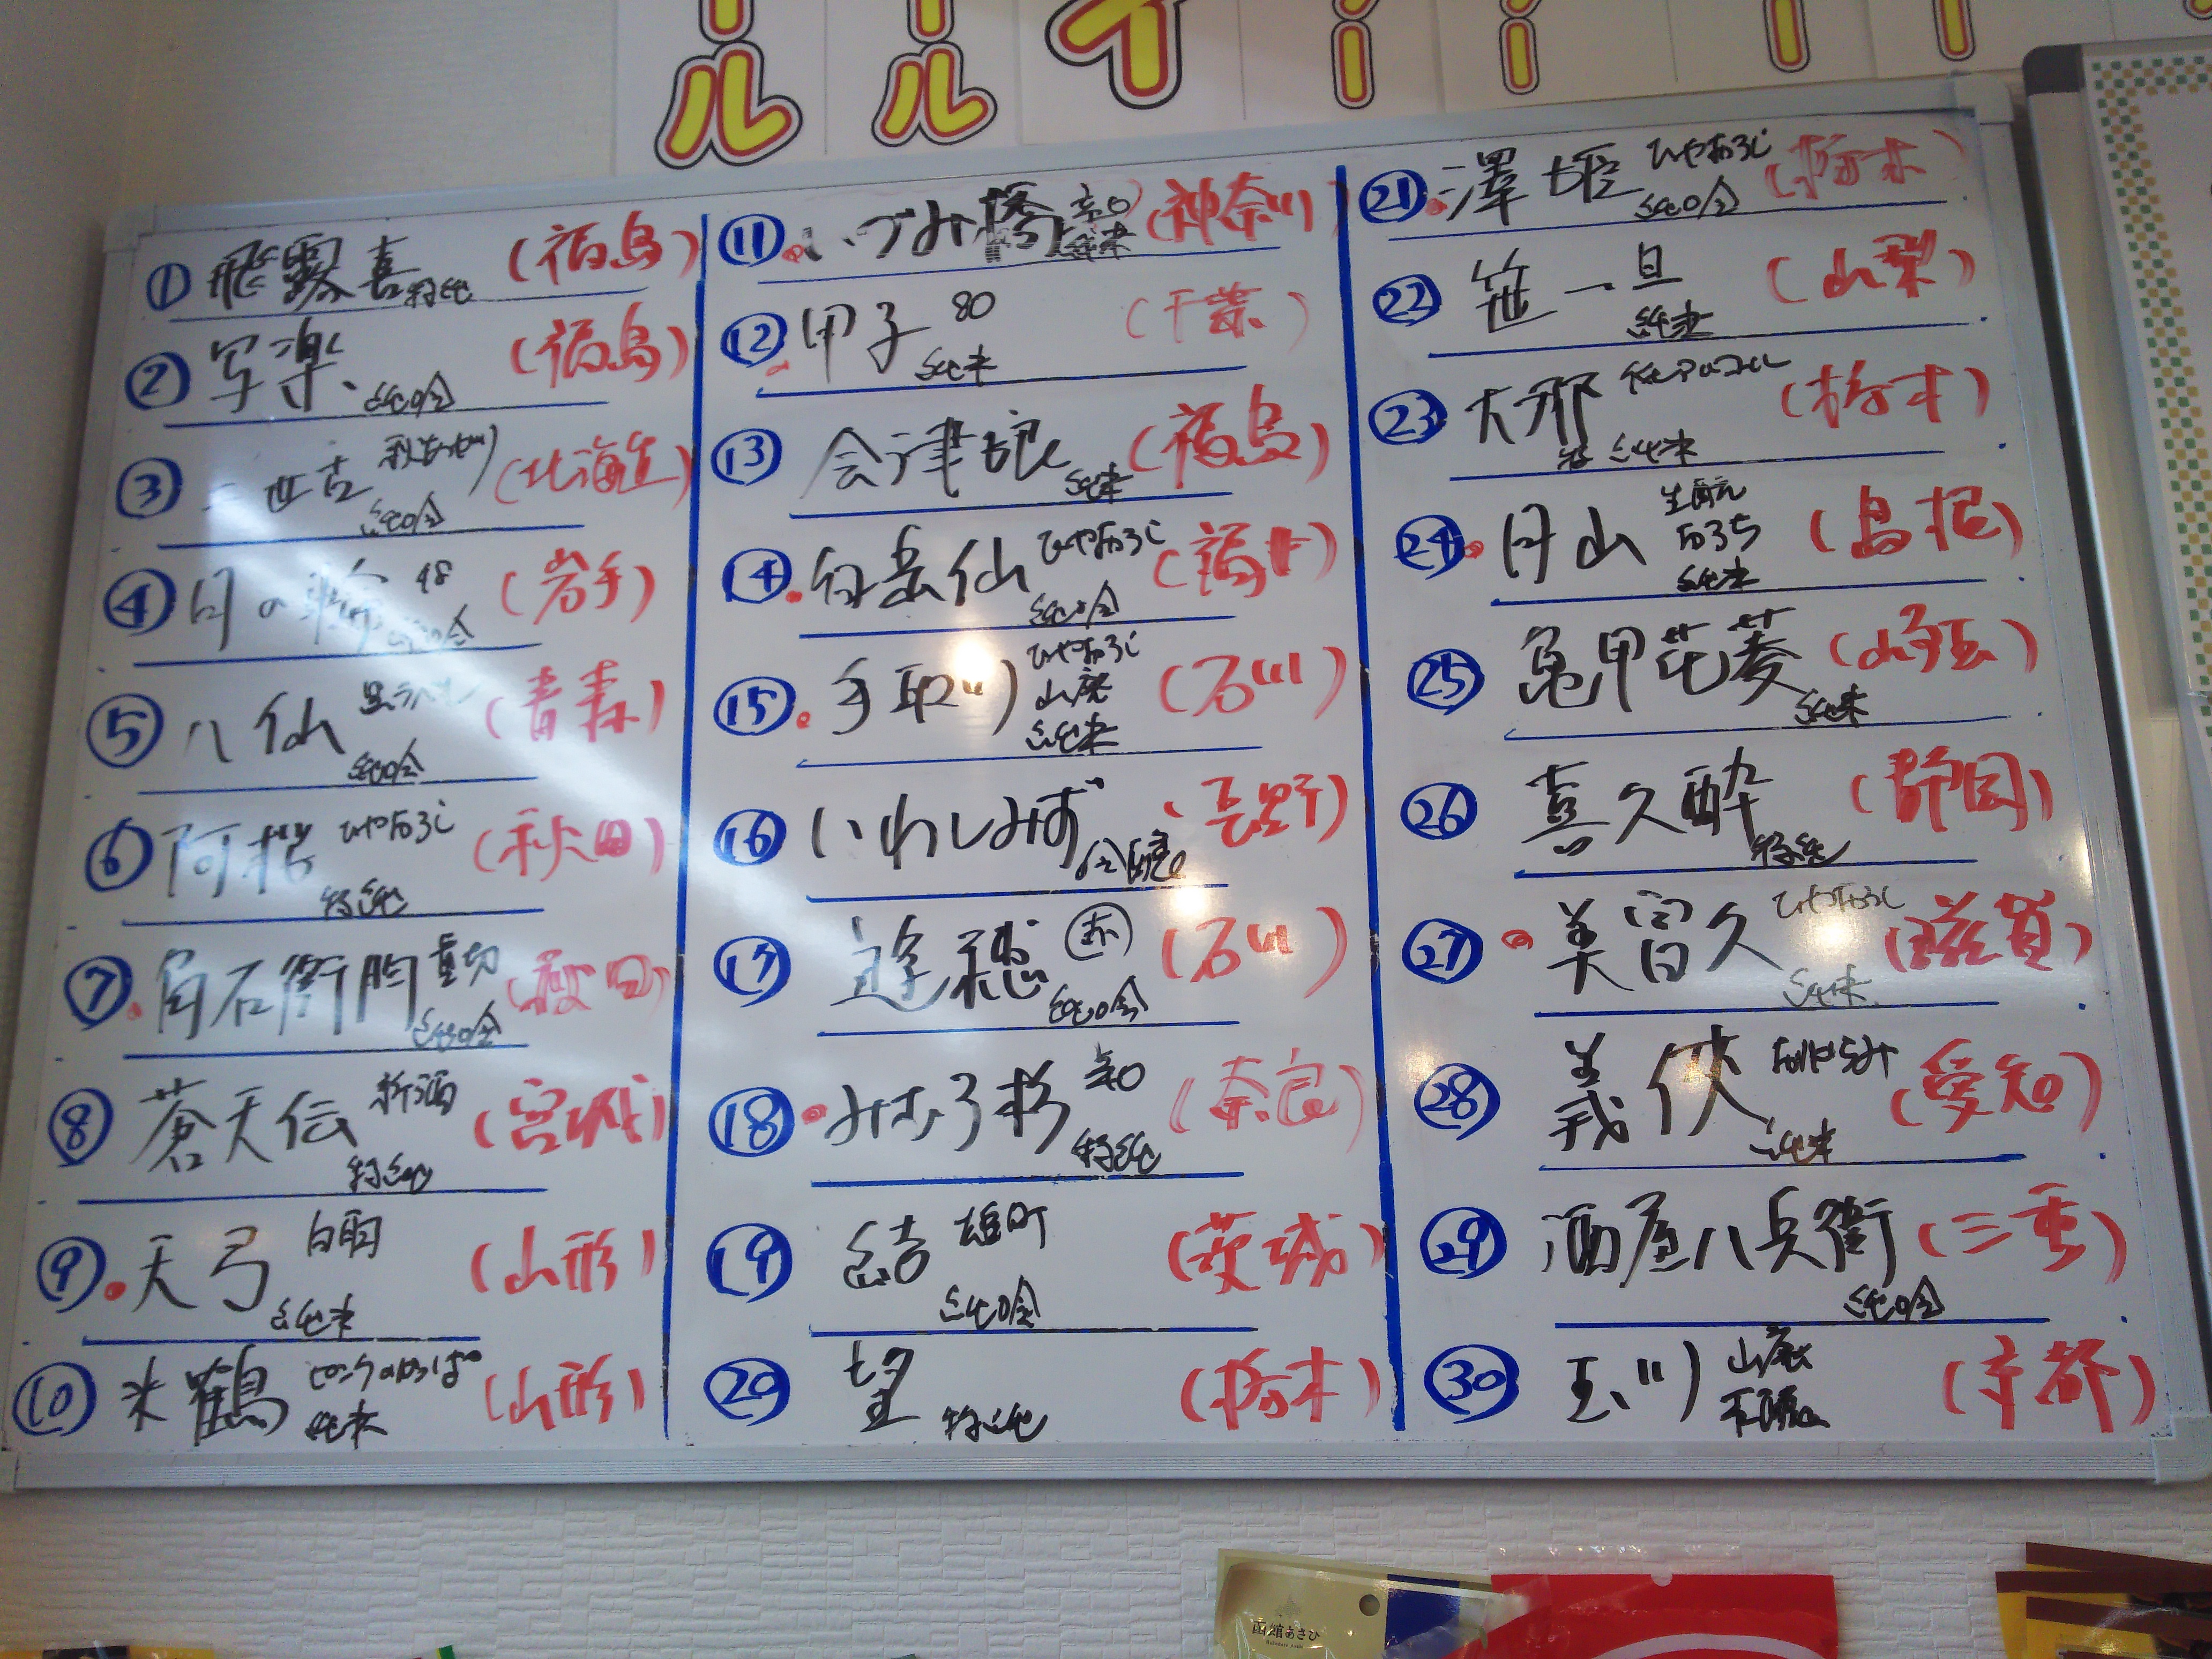 ル ル イ ー ー ー ー
① 飛露喜 特純 (福島)
② 写楽 純吟 (福島)
③ 二世古 秋あがり 純吟 (北海道)
④ 月の輪 48 純吟 (岩手)
⑤ 八仙 黒ラベル 純吟 (青森)
⑥ 阿櫻 ひやおろし 特純 (秋田)
⑦ 角右衛門 純吟 (秋田)
⑧ 蒼天伝 新酒 特純 (宮城)
⑨ 天弓 白雨 純米 (山形)
⑩ 米鶴 ピンクのかっぱ 純米 (山形)
⑪ いづみ橋 純米 (神奈川)
⑫ 甲子 80 純米 (千葉)
⑬ 会津娘 純米 (福島)
⑭ 白岳仙 ひやおろし 純吟 (福井)
⑮ 手取川 ひやおろし 山廃 純米 (石川)
⑯ いわしみず (長野)
⑰ 遊穂 赤 純吟 (石川)
⑱ みむろ杉 特純 (奈良)
⑲ 結 雄町 純吟 (茨城)
⑳ 望 特純 (栃木)
㉑ 澤姫 ひやおろし 純吟 (栃木)
㉒ 笹一 旦 純米 (山梨)
㉓ 大那 特 純米 (栃木)
㉔ 月山 生酛 純米 (島根)
㉕ 亀甲花菱 純米 (埼玉)
㉖ 喜久酔 特純 (静岡)
㉗ 美冨久 ひやおろし 純米 (滋賀)
㉘ 義侠 純米 (愛知)
㉙ 酒屋八兵衛 純吟 (三重)
㉚ 玉川 山廃 (京都)
函館あさひ